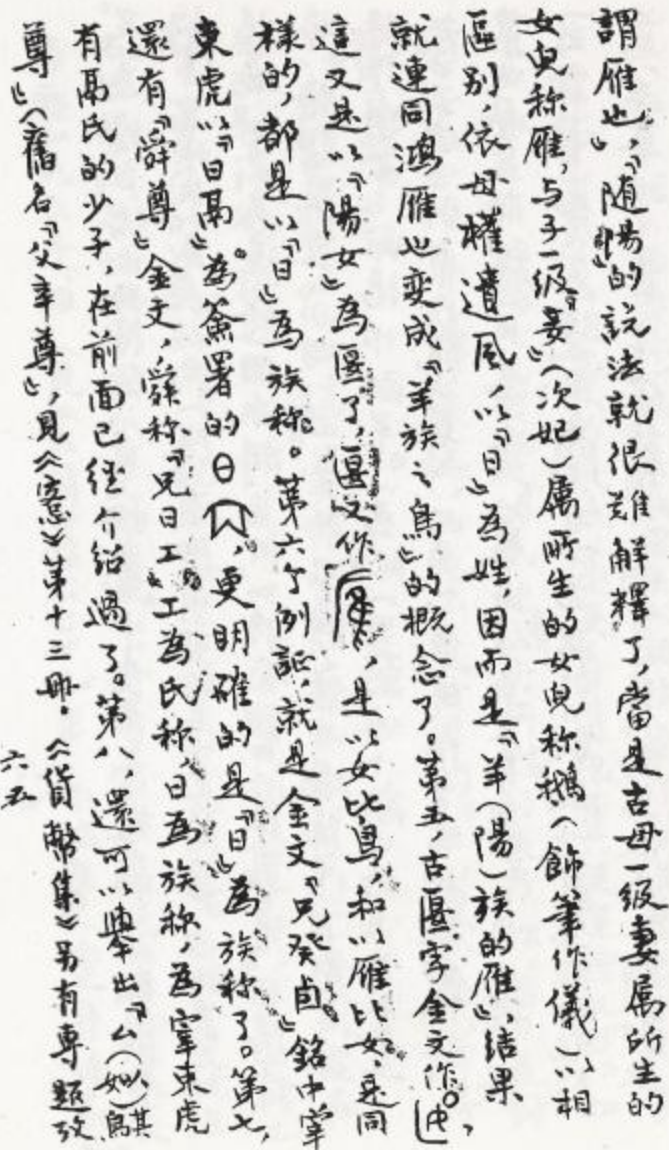 謂雁也』,『随陽』的説法就很难解釋了,當是古母一級妻属所生的
女兒称雁,与子一級『妾』(次妃)属所生的女兒称鵝(飾筆作儀)以相
區别,依母權遺風,以『日』為姓,因而是『羊(陽)族的雁』,结果
就連同鴻雁也变成『羊族之鳥』的概念了。第五,古匽字金文作,
這又是以『陽女』為匽了,匽又作,是以女比鳥,和以雁比女,是同
樣的,都是以『日』為族称。第六个例証,就是金文『兄癸卣』銘中宰
東虎以『日鬲』為簽署的,更明確的是『日』為族称了。第七,
還有『舜尊』金文,舜称『兄日工』,工為氏称,日為族称,為宰東虎
有鬲氏的少子,在前面已经介紹過了。第八,還可以舉出『厶(以)其
尊』(舊名『父辛尊』,見《愙》第十三册。《貨幣集》另有專題攷
六五